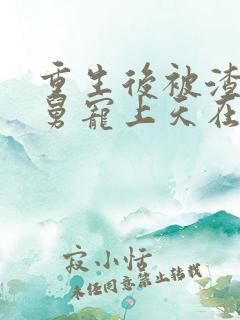 重生後被渣
舅寵上天在
寂小恬
未任同意禁止转载